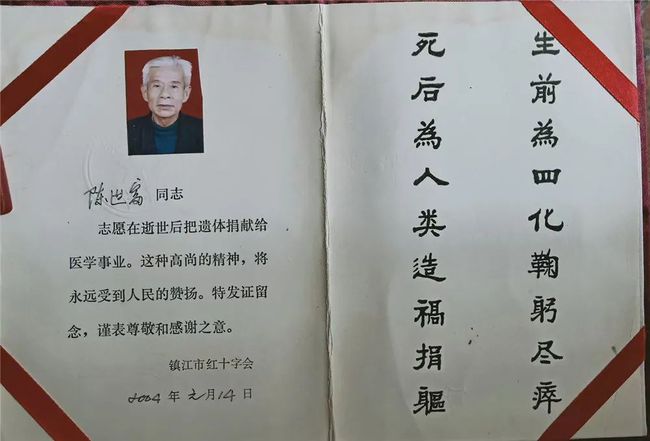 陈世富 同志
志愿在逝世后把遗体捐献给
医学事业。这种高尚的精神，将
永远受到人民的赞扬。特发证留
念，谨表尊敬和感谢之意。
镇江市红十字会
2004 年 元 月 14 日
生前為四化鞠躬尽瘁
死后為人类造福捐軀